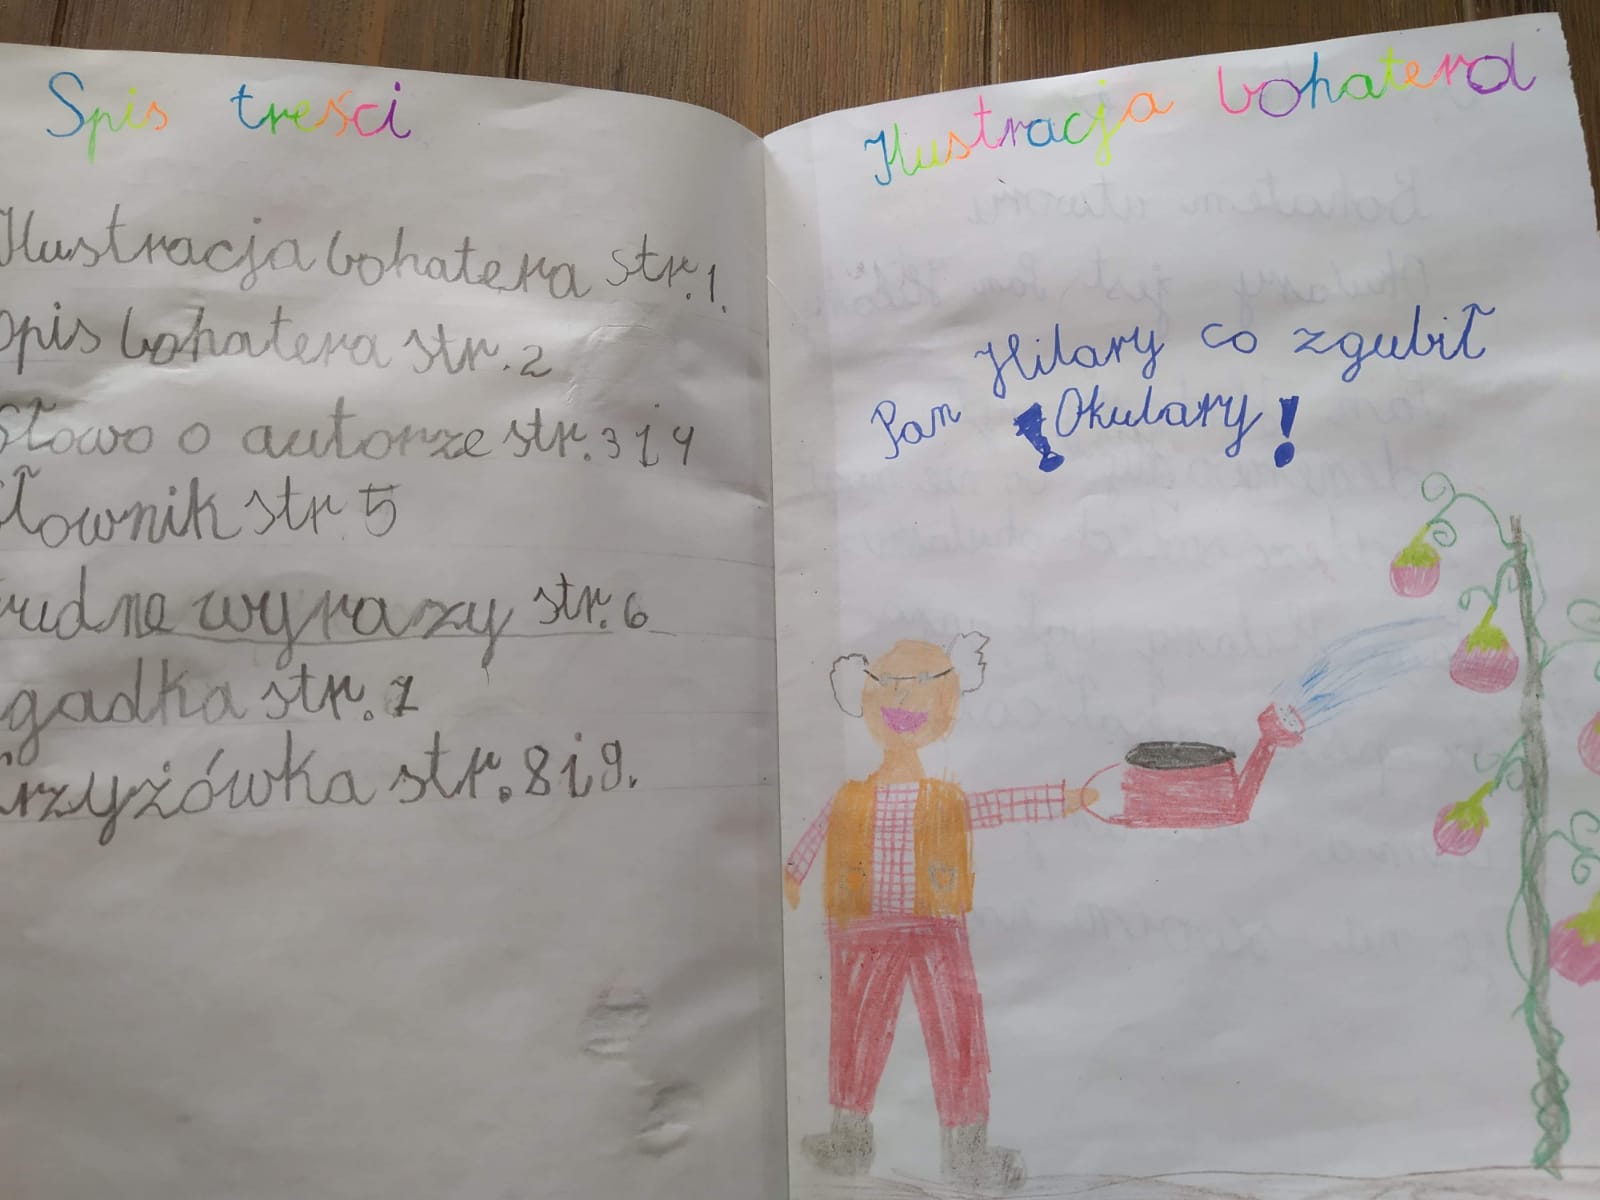 Spis treści
Ilustracja bohatera str. 1.
Opis bohatera str. 2
Słowo o autorze str. 3 i 4
Słownik str 5
rudne wyrazy str. 6
gadka str. 7
rzyżówka str. 8 i 9.
Ilustracja bohatera
Hilary co zgubił
Pan Okulary!